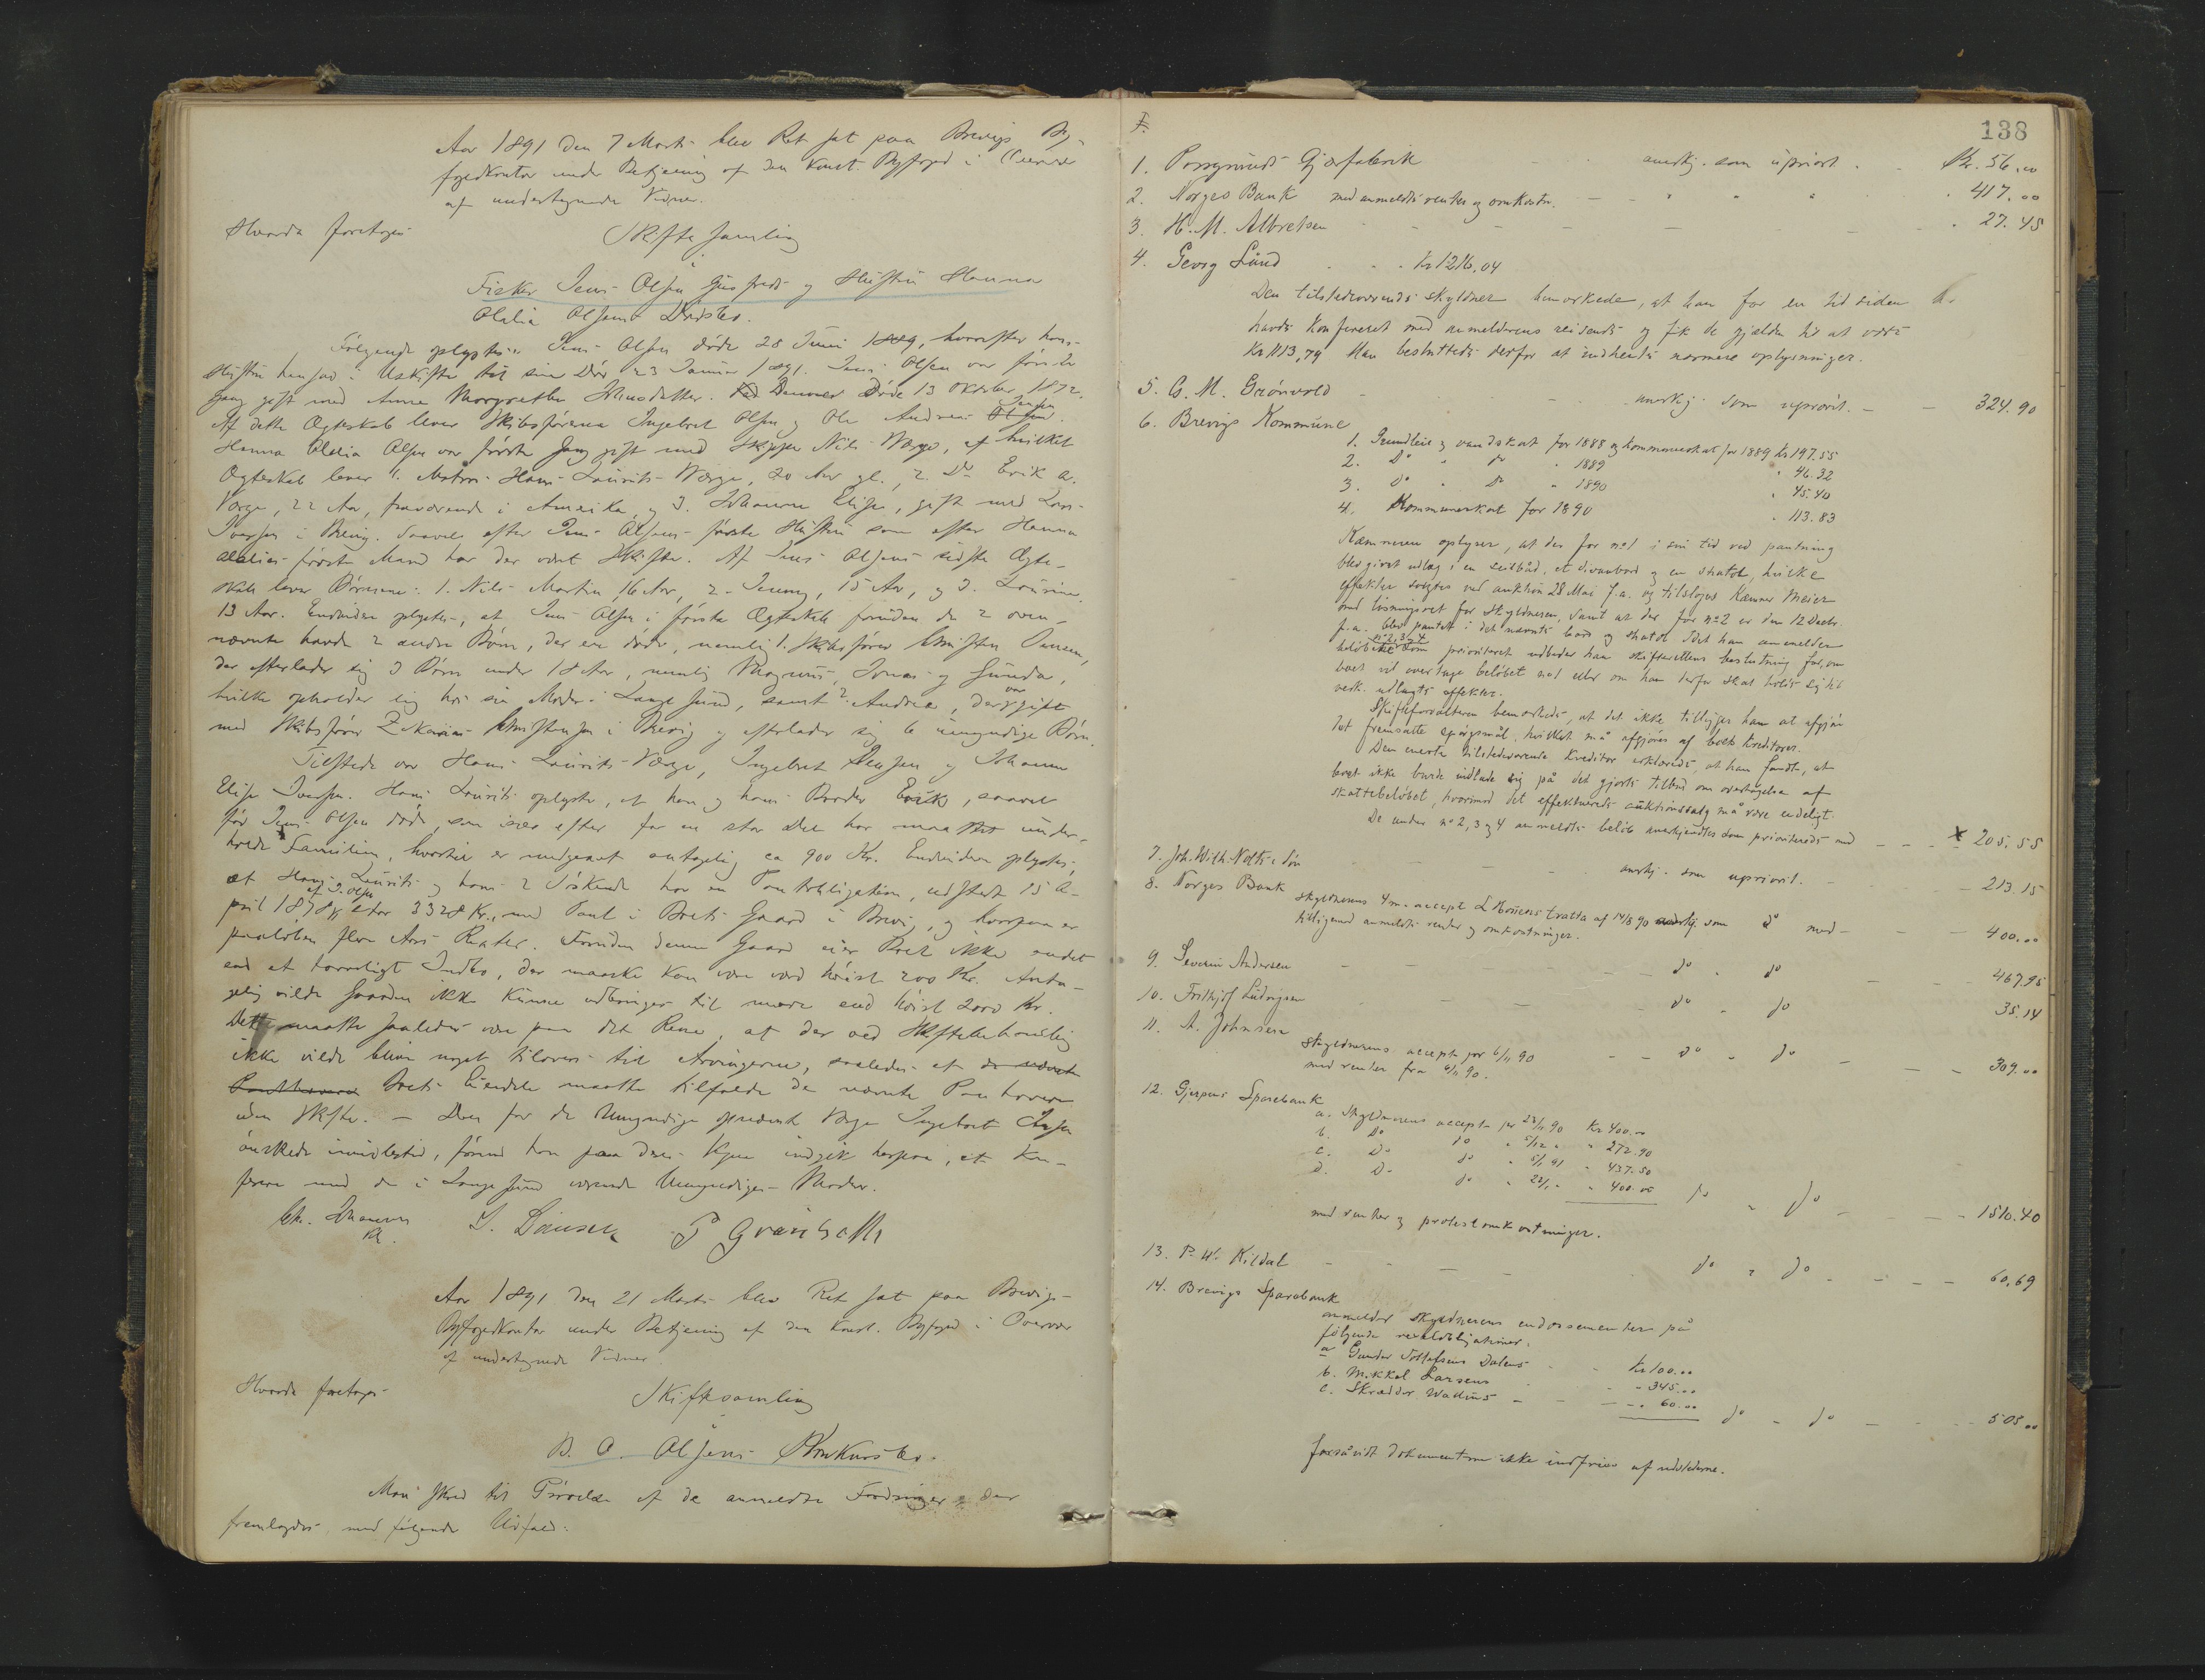 Aar 1891 den 7 Marts blev Ret sat paa Brevigs By-
fogedkontor under Betjening af den konst. Byfoged i Overvær
af undertegnede Vidner.
Hvorda foretoges
Skiftesamling
i
Fisker Jens Olsen og Hustru Hanna
Olalia Olsens Dødsbo.
Følgende oplystes: Jens Olsen døde 28 Juni 1889, hvorefter hans
Hustru hensad i Uskiftet til sin Død 23 Januar 1891. Jens Olsen var første
Gang gift med Anne Margrethe Hansdatter. Denne Døde 13 Oktober 1872.
Af dette Ægteskab lever Skibsførerne Ingebret Olsen og Ole Andreas Jensen.
Hanna Olalia Olsen var første Gang gift med Skipper Nils Værge, af hvilket
Ægteskab lever 1. Matros Hans Laurits Værge, 20 Aar gl., 2. Do Erik A.
Værge, 22 Aar, fraværende i Amerika, og 3. Johanne Elise, gift med Lars
Iversen i Brevig. Saavel efter Jens Olsens første Hustru som efter Hanna
Olalias første Mand har der været Skifte. Af Jens Olsens sidste Ægte-
skab lever Børnene: 1. Nils Martin, 16 Aar, 2. Jenny, 15 Aar, og 3. Laurine
13 Aar. Endvidere oplystes, at Jens Olsen i første Ægteskab foruden de 2 oven-
nævnte havde 2 andre Børn, der ere døde, nemlig 1. Skibsfører Christen Jensen,
der efterlader sig 3 Børn under 18 Aar, nemlig Magnus, Jonas og Gunda,
hvilke opholder sig hos sin Moder i Langesund, samt 2. Andrea, der var gift
med Skibsfører Zakarias Christensen i Brevig og efterlader sig 6 umyndige Børn.
Tilstede var Hans Laurits Værge, Ingebret Jensen og Johanne
Elise Iversen. Hans Laurits oplyste, at han og hans Broder Erik, saavel
før Jens Olsen døde, som især efter for en stor Del har maattet under-
holde Familien, hvortil er medgaaet antagelig ca 900 Kr. Endvidere oplystes,
at Hans Laurits og hans 2 Søskende har en Pantobligation, udstedt 15 A-
pril 1878 af J. Olsen, stor 3328 Kr., med Pant i Boets Gaard i Brevig, og hvorpaa er
paaløben flere Aars Renter. Foruden denne Gaard eier Boet ikke andet
end et tarveligt Indbo, der maaske kan være værd høist 200 Kr. Anta-
gelig vilde Gaarden ikke kunne udbringes til mere end høist 2000 Kr.
Det maatte saaledes være paa det Rene, at der ved Skiftebehandling
ikke vilde blive noget tilovers til Arvingerne, saaledes at de nævnte
Panthavere Boets Eiendele maatte tilfalde de nævnte Panthavere
uden Skifte. — Den for de Umyndige opnævnte Værge Ingebret Jensen
ønskede imidlertid, førend han paa deres Vegne indgik herpaa, at kon-
ferere med de i Langesund værende Umyndiges Moder.
Chr. Johansen
S. Larsen
P Gravisath
Aar 1891 den 21 Marts blev Ret sat paa Brevigs
Byfogedkontor under Betjening af den konst. Byfoged i Overvær
af undertegnede Vidner.
Hvorda foretoges
Skiftesamling
i
B. O. Olsens Konkursbo.
Man skred til Prøvelse af de anmeldte Fordringer der
fremlagdes, med følgende Udfald:
138
I.
1. Porsgrunds Gjærfabrik - - anerkj. som uprior. - - Kr. 56.00
2. Norges Bank med anmeldte renter og omkostn. - - " " " - 417.00
3. H. M. Albretsen - - - - - - 27.45
4. Georg Lund - - - Kr 1216.04
Den tilstedeværende skyldner bemærkede, at han for en tid siden
havde konfereret med anmelderens reisende og fik da gjælden til at være
Kr 1113,79 Man besluttede derfor at indhente nærmere oplysninger.
5. C. M. Grönvold - - - anerkj. som uprior. - - 324.90
6. Brevigs Kommune
1. Grundleie og vandskat for 1888 og kommuneskat for 1889 Kr 197.55
2. Do " do " 1889 " 46.32
3. Do " Do " 1890 " 45.40
4. Kommuneskat for 1890 " 113.83
Kæmneren oplyser, at der for no 1 i sin tid ved pantning
blev givet udlæg i en seilbåd, et divanbord og en chatol, hvilke
effekter solgtes ved auktion 28 Mai f.a. og tilsloges Kæmner Meier
med løsningsret for skyldneren, samt at der for no 2 er den 12 Decbr.
f.a. blev pantet i det nævnte bord og chatol. Idet han anmelder
beløbene no 2, 3 og 4 som prioriteret udbeder han skifterettens beslutning for, om
boet vil overtage beløbet no 1 eller om han derfor skal holde sig til
vedk. udlagte effekter.
Skifteforvalteren bemærkede, at det ikke tilligger ham at afgjøre
det fremsatte spørgsmål, hvilket må afgjøres af boets kreditorer.
Den eneste tilstedeværende kreditor erklærede, at han fandt, at
boet ikke burde indlade sig på det gjorte tilbud om overtagelse af
skattebeløbet, hvorimod det effektuerede auktionssalg må være endeligt.
De under no 2, 3 og 4 anmeldte beløb anerkjendtes som prioriterede med - - - x 205.55
7. Joh. Wilh. Nolts Søn - - - anerkj. som uprioril. - - 213.15
8. Norges Bank
skyldnerens 4 m. accept L. Moüens tratta af 14/8 90 anerkj. som do med - - 400.00
tilligemed anmeldte renter og omkostninger.
9. Severin Andersen - - - - do " do - - 467.95
10. Frithjof Ludvigsen - - - - do " do 35.14
11. A. Johnsen
skyldnerens accept pr 6/11 90 - - do " do - - - 309.00
med renter fra 6/11 90.
12. Gjerpens Sparebank
a. Skyldnerens accept pr 23/11 90 Kr 400.00
b. Do do " 5/12 " " 272.90
c. Do do " 5/1 91 " 437.50
d. Do do " 23/1 " " 400.00 do " do - - - 1510.40
med renter og protestomkostninger.
13. P. W. Kildal - - - - do " do - - - 60.69
14. Brevigs Sparebank
anmelder skyldnerens endossementer på
følgende vexelobligationer.
a. Gunder Tollefsens Dalens - - Kr 100.00
b. Mikkel Larsens - - " 345.00
c. Skrædder Wadüns - - - " 60.00 do - do - - - 505.00
forsåvidt dokumenterne ikke indfries af udstederne.